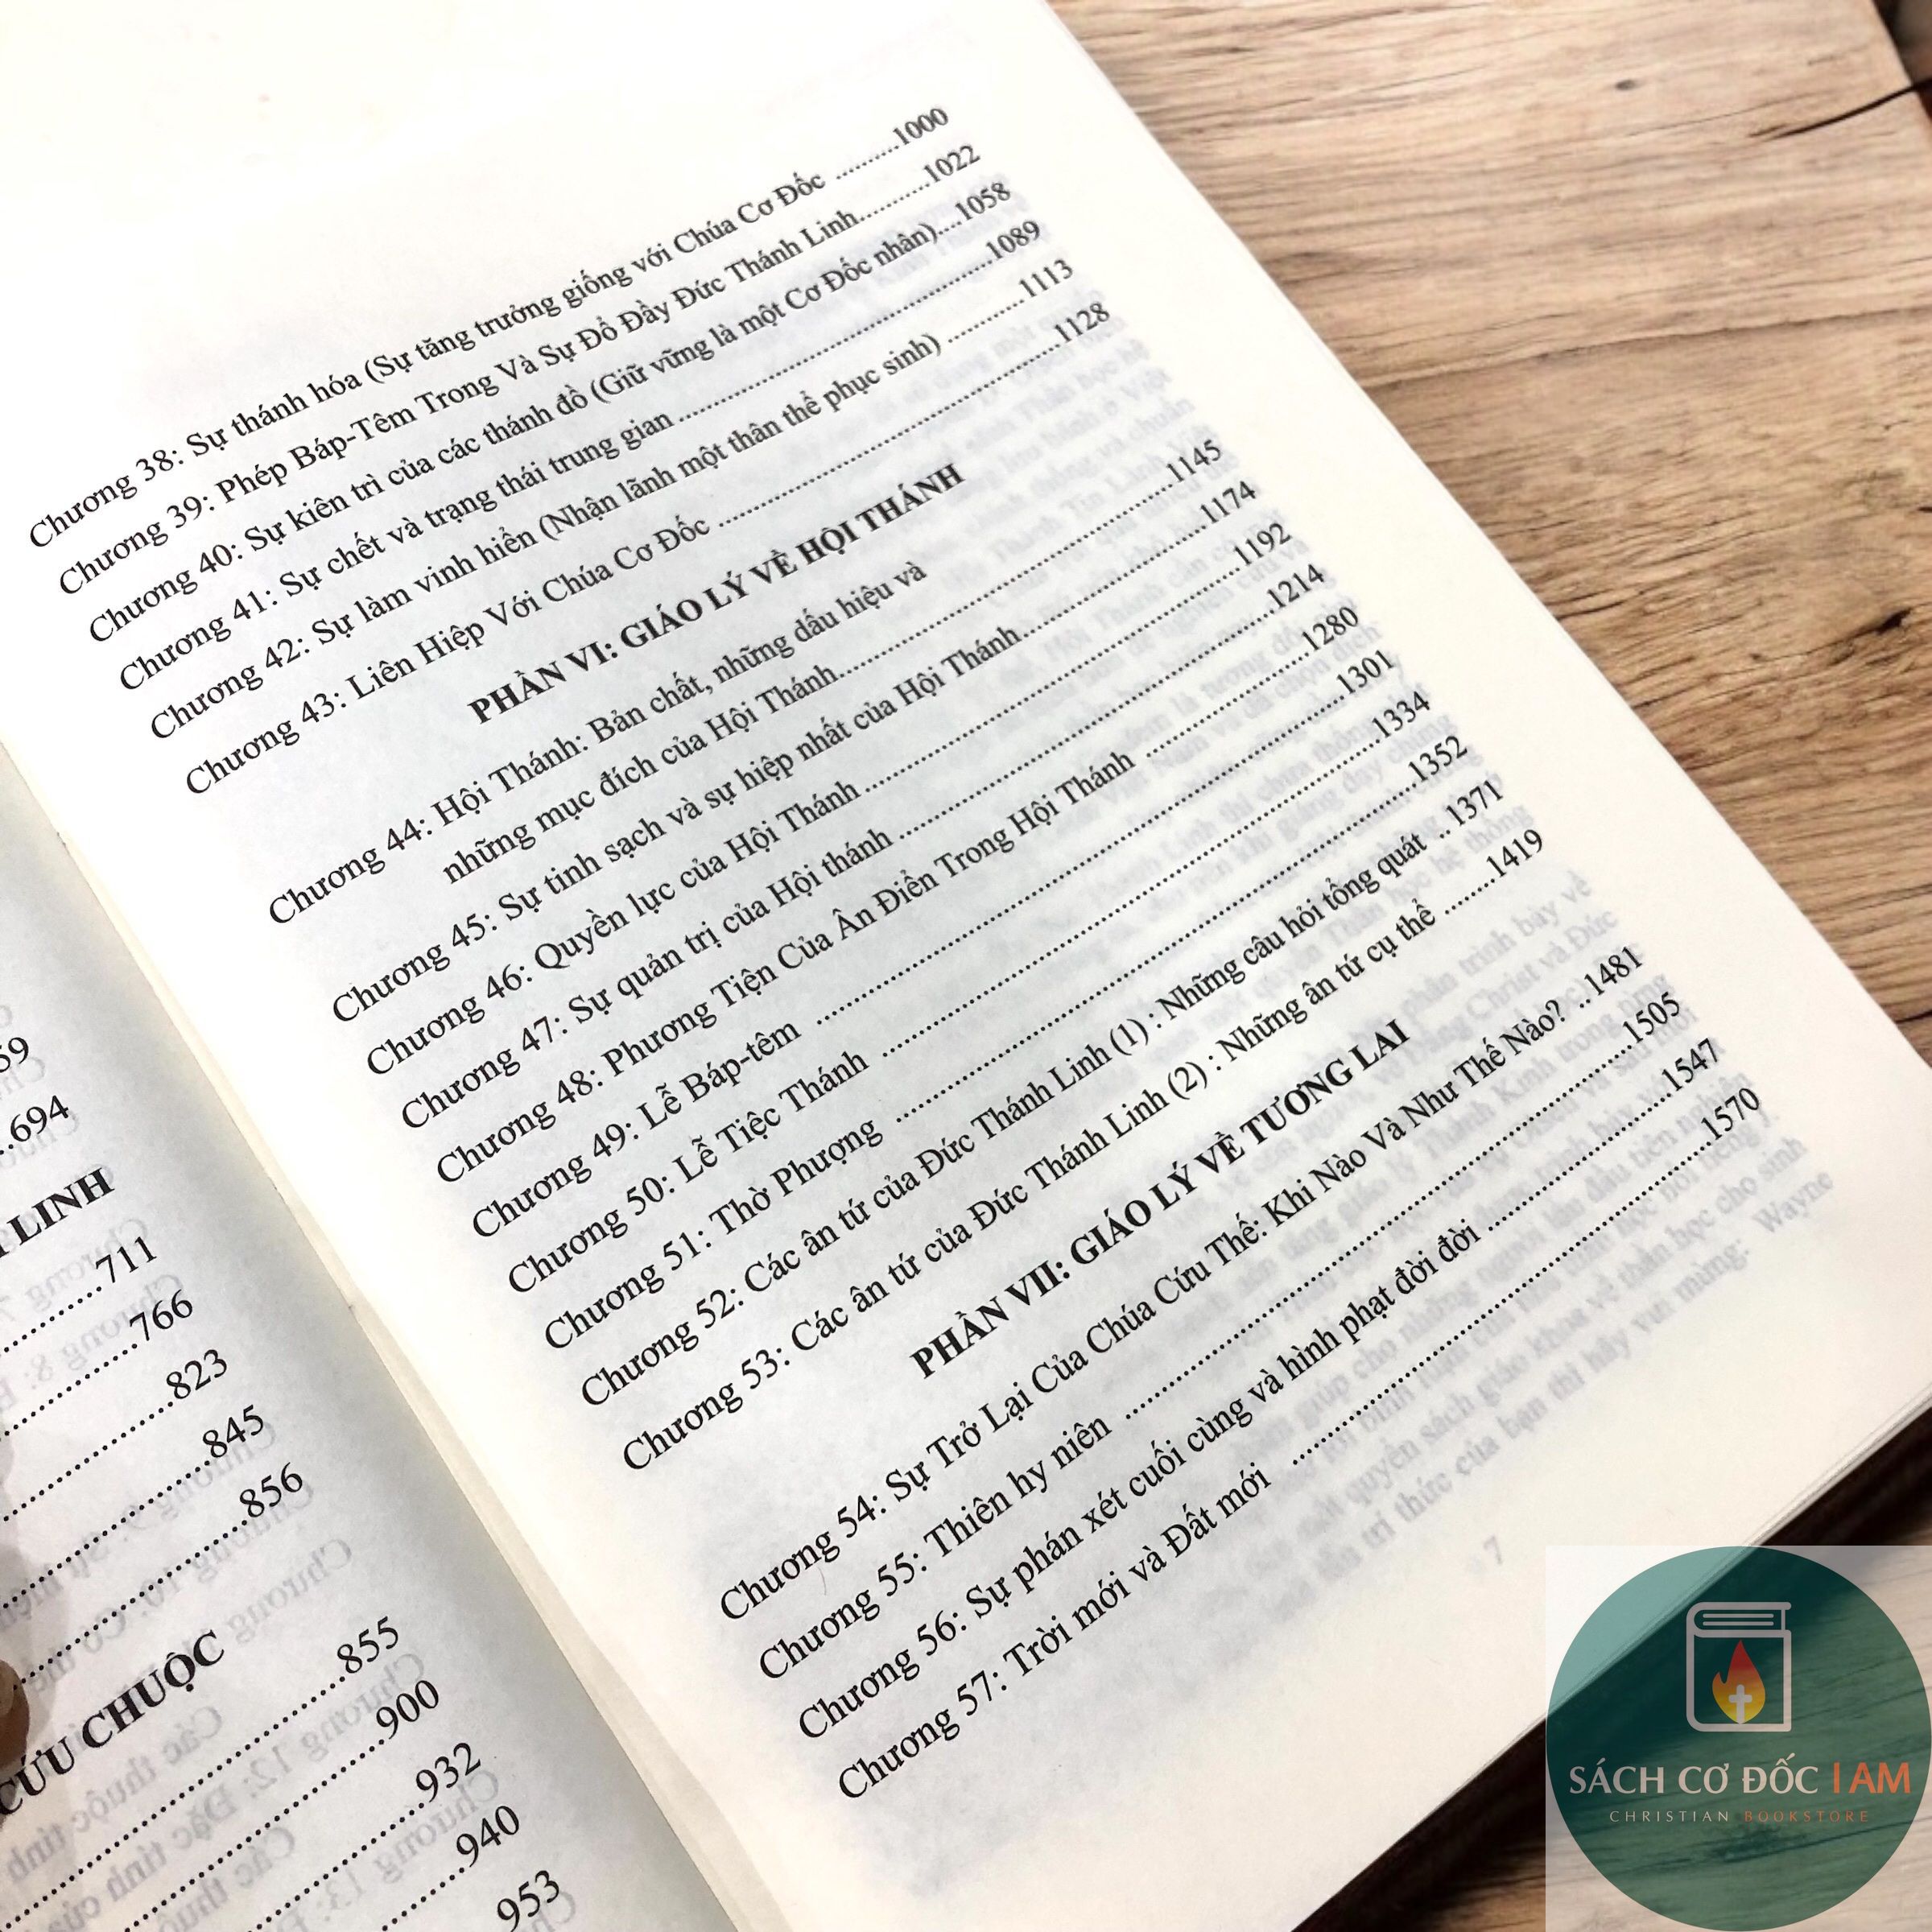 59
694
LINH
711
766
823
845
856
CỨU CHUỘC
855
900
932
940
953
Chương 38: Sự thánh hóa (Sự tăng trưởng giống với Chúa Cơ Đốc ..........1000
Chương 39: Phép Báp-Têm Trong Và Sự Đổ Đầy Đức Thánh Linh..........1022
Chương 40: Sự kiên trì của các thánh đồ (Giữ vững là một Cơ Đốc nhân)....1058
Chương 41: Sự chết và trạng thái trung gian ..........1089
Chương 42: Sự làm vinh hiển (Nhận lãnh một thân thể phục sinh) ..........1113
Chương 43: Liên Hiệp Với Chúa Cơ Đốc ..........1128
PHẦN VI: GIÁO LÝ VỀ HỘI THÁNH
Chương 44: Hội Thánh: Bản chất, những dấu hiệu và
những mục đích của Hội Thánh..........1145
Chương 45: Sự tinh sạch và sự hiệp nhất của Hội Thánh..........1174
Chương 46: Quyền lực của Hội Thánh..........1192
Chương 47: Sự quản trị của Hội thánh ..........1214
Chương 48: Phương Tiện Của Ân Điển Trong Hội Thánh ..........1280
Chương 49: Lễ Báp-têm ..........1301
Chương 50: Lễ Tiệc Thánh ..........1334
Chương 51: Thờ Phượng ..........1352
Chương 52: Các ân tứ của Đức Thánh Linh (1) : Những câu hỏi tổng quát ..1371
Chương 53: Các ân tứ của Đức Thánh Linh (2) : Những ân tứ cụ thể .......1419
PHẦN VII: GIÁO LÝ VỀ TƯƠNG LAI
Chương 54: Sự Trở Lại Của Chúa Cứu Thế: Khi Nào Và Như Thế Nào? ..1481
Chương 55: Thiên hy niên ..........1505
Chương 56: Sự phán xét cuối cùng và hình phạt đời đời ..........1547
Chương 57: Trời mới và Đất mới ..........1570
7
SÁCH CƠ ĐỐC I AM
CHRISTIAN BOOKSTORE